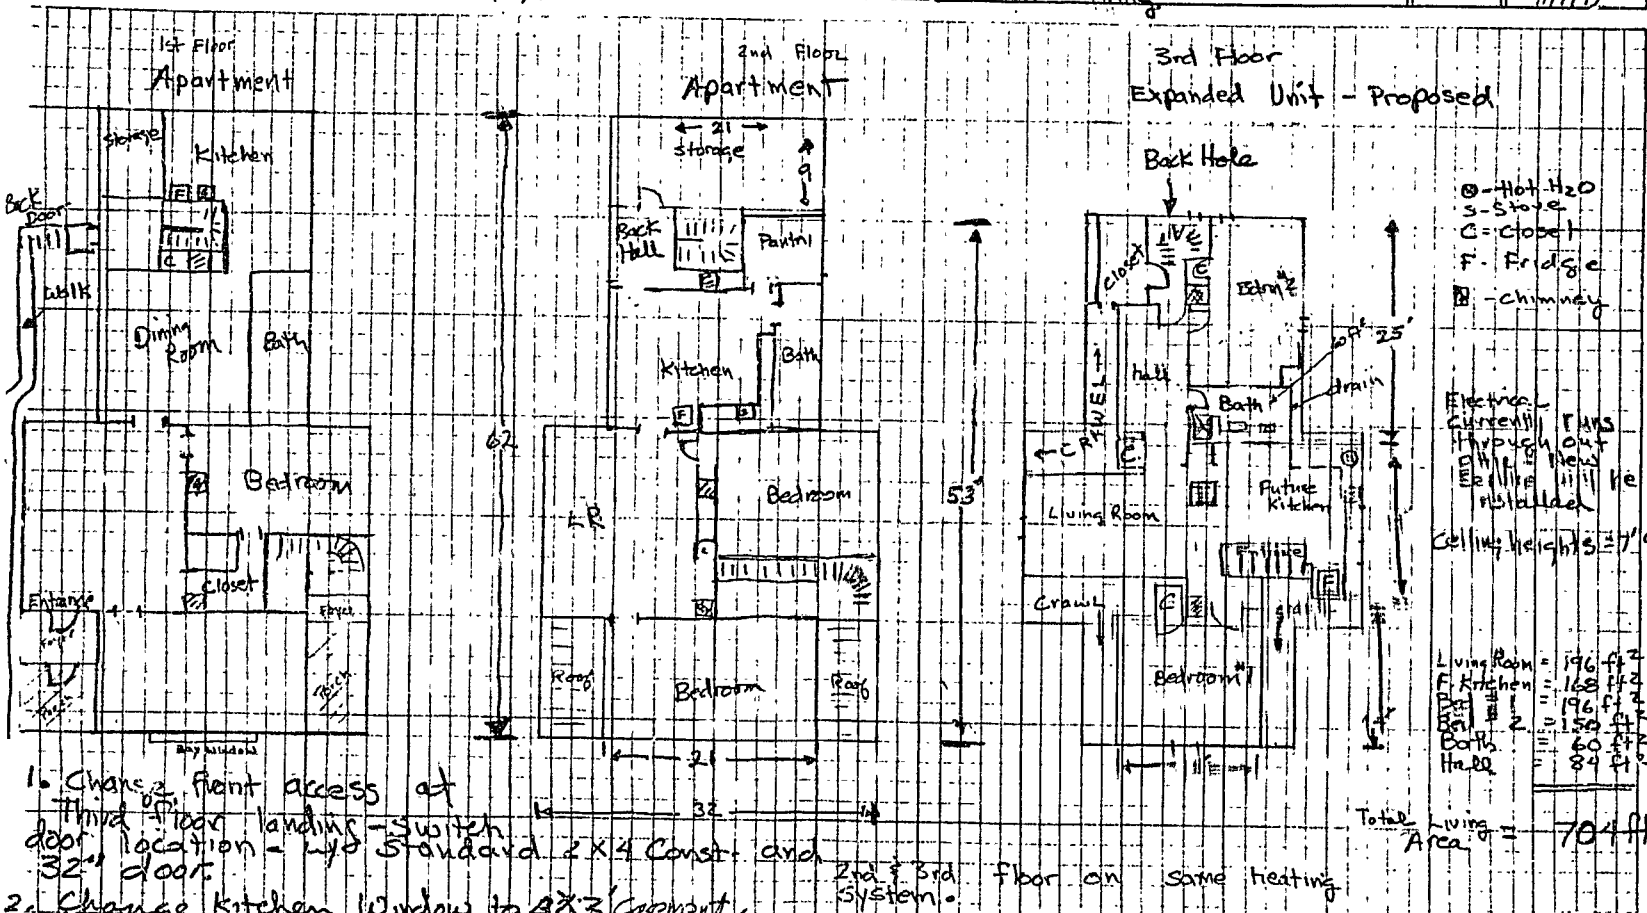 1st Floor
Apartment
Storage
Kitchen
F
S
Back
Door
C
Walk
Dining
Room
Bath
Bedroom
Closet
Entrance
Foyer
Foyer
Porch
Porch
Bay Window
2nd Floor
Apartment
21
Storage
9
Back
Hall
Pantri
62
Kitchen
Bath
F
S
LR
Bedroom
C
Roof
Bedroom
Roof
21
32
3rd Floor
Expanded Unit - Proposed
Back Hole
Closet
C
Bdrm #2
hall
Bath
drain
25'
53'
Living Room
Future
Kitchen
F
Crawl
C
Bedroom #1
- Hot H2O
S - Stove
C = Closet
F - Fridge
- chimney
Electrical
Currently runs
through out
installed
Ceiling heights =
Living Room = 196 ft2
F. Kitchen = 168 ft2
= 196 ft2
2 = 150 ft2
Bath = 60 ft2
Hall = 84 ft2
Total Living = 704 ft
Area
1. Change front access at
Third floor landing - switch
door location - standard 2x4 Const. and
32" door.
2nd & 3rd floor on same heating
system.
2. Change Kitchen Window to